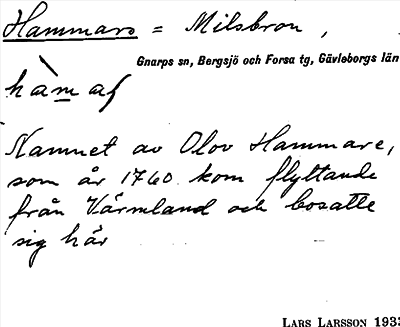 Hammars = Milsbron,
Gnarps sn, Bergsjö och Forsa tg, Gävleborgs län
hàmaʃ
Namnet av Olov Hammare,
som år 1760 kom flyttande
från Värmland och bosatte
sig här
LARS LARSSON 1933